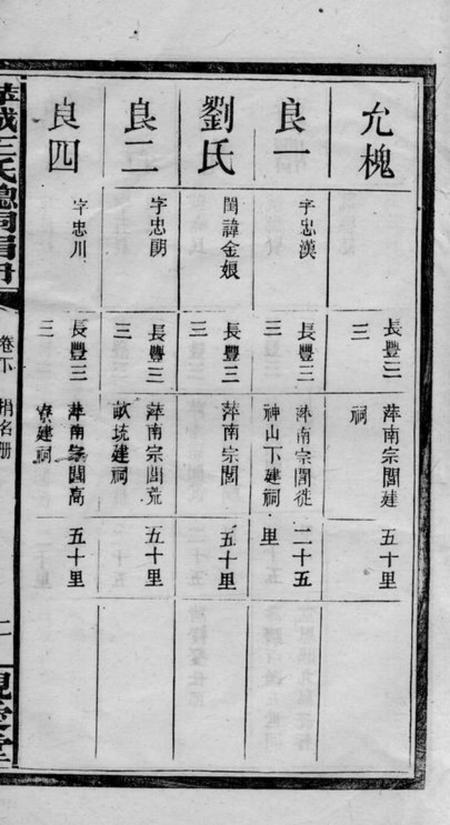 允槐
長豐三
三
萍南宗閭建
祠
五十里
良一
字忠漢
長豐三
三
萍南宗閭徙
神山下建祠
二十五
里
劉氏
閨諱金娘
長豐三
三
萍南宗閭
五十里
良二
字忠朗
長豐三
三
萍南宗閭荒
畝坑建祠
五十里
良四
字忠川
長豐三
三
萍南宗閭高
寮建祠
五十里
萍城王氏總祠捐冊
卷下 捐名冊
二